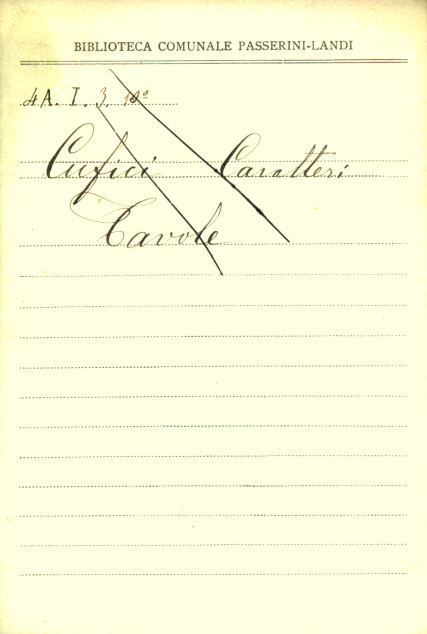 BIBLIOTECA COMUNALE PASSERINI-LANDI
4A. I. 3. 10º
Cufici Caratteri
Tavole